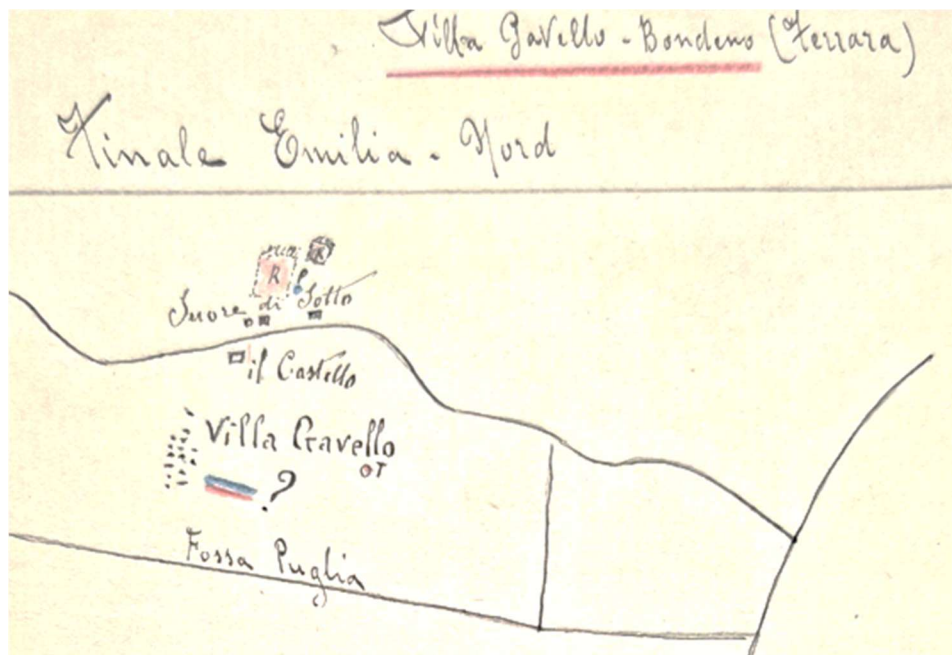 Villa Gavello - Bondeno (Ferrara)
Finale Emilia - Nord
R
R
Suore di Sotto
il Castello
Villa Gavello
T
?
Fossa Puglia